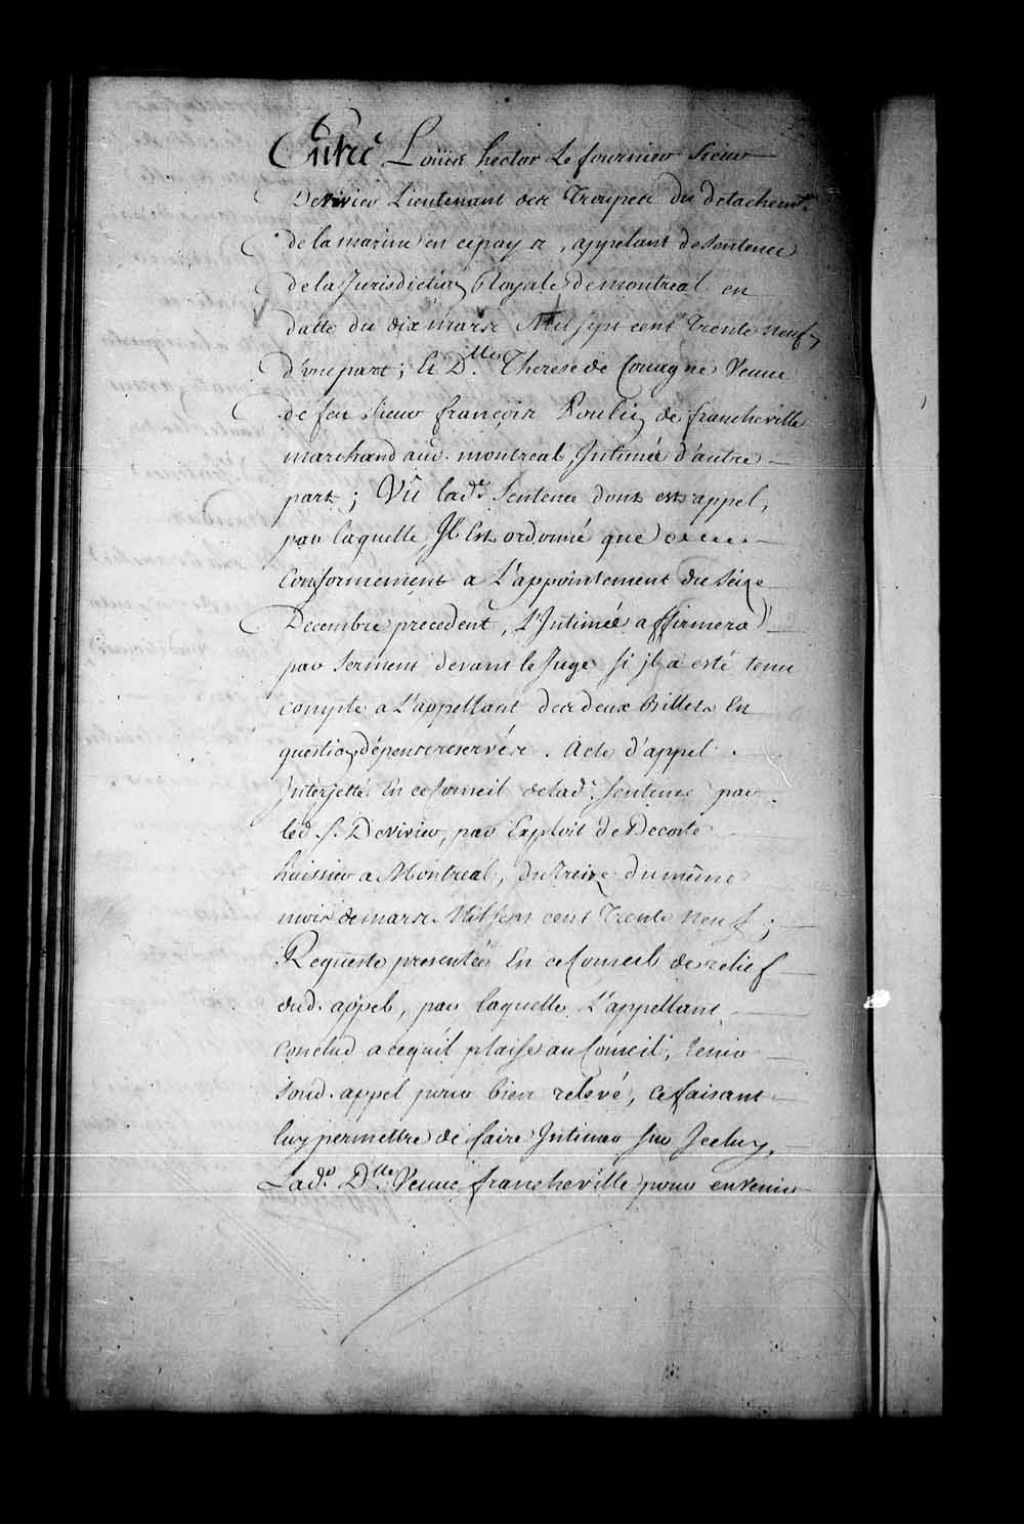 Entre Loüis hector Le fournier Sieur
DeVivier Lieutenant des Troupes du détachemt.
de la marine en ce pays, appelant de Sentence
de la Jurisdiction Royale de montreal en
datte du dix mars Mil sept cent Trente neuf,
d'une part; Et Dlle. Therese de Couagne Veuve
de feu Sieur françois Poulin de francheville
marchand aud. montreal, Intimée d'autre
part; Vû lade. Sentence dont est appel,
par laquelle Il Est ordonné que
Conformement a L'appointement du Seize
Decembre precedent, L'Intimée affirmera
par Serment devant le Juge si jl a esté tenu
compte a L'appellant des deux Billets En
question, dépens reservés. Acte d'appel
Interjetté En ce Conseil de lad. Sentence par
led. S. DeVivier, par Exploit de Decoste
huissier a Montreal, du treize du même
mois de mars Mil sept cent Trente neuf;
Requeste presentée En ce Conseil de relief
dud. appel, par laquelle L'appellant
Conclud a ce qu'il plaise au Conseil, tenir
Sond. appel pour bien relevé, ce faisant
luy permettre de faire Intimer sur Jceluy,
Lade. Dlle. Veuve francheville pour en venir